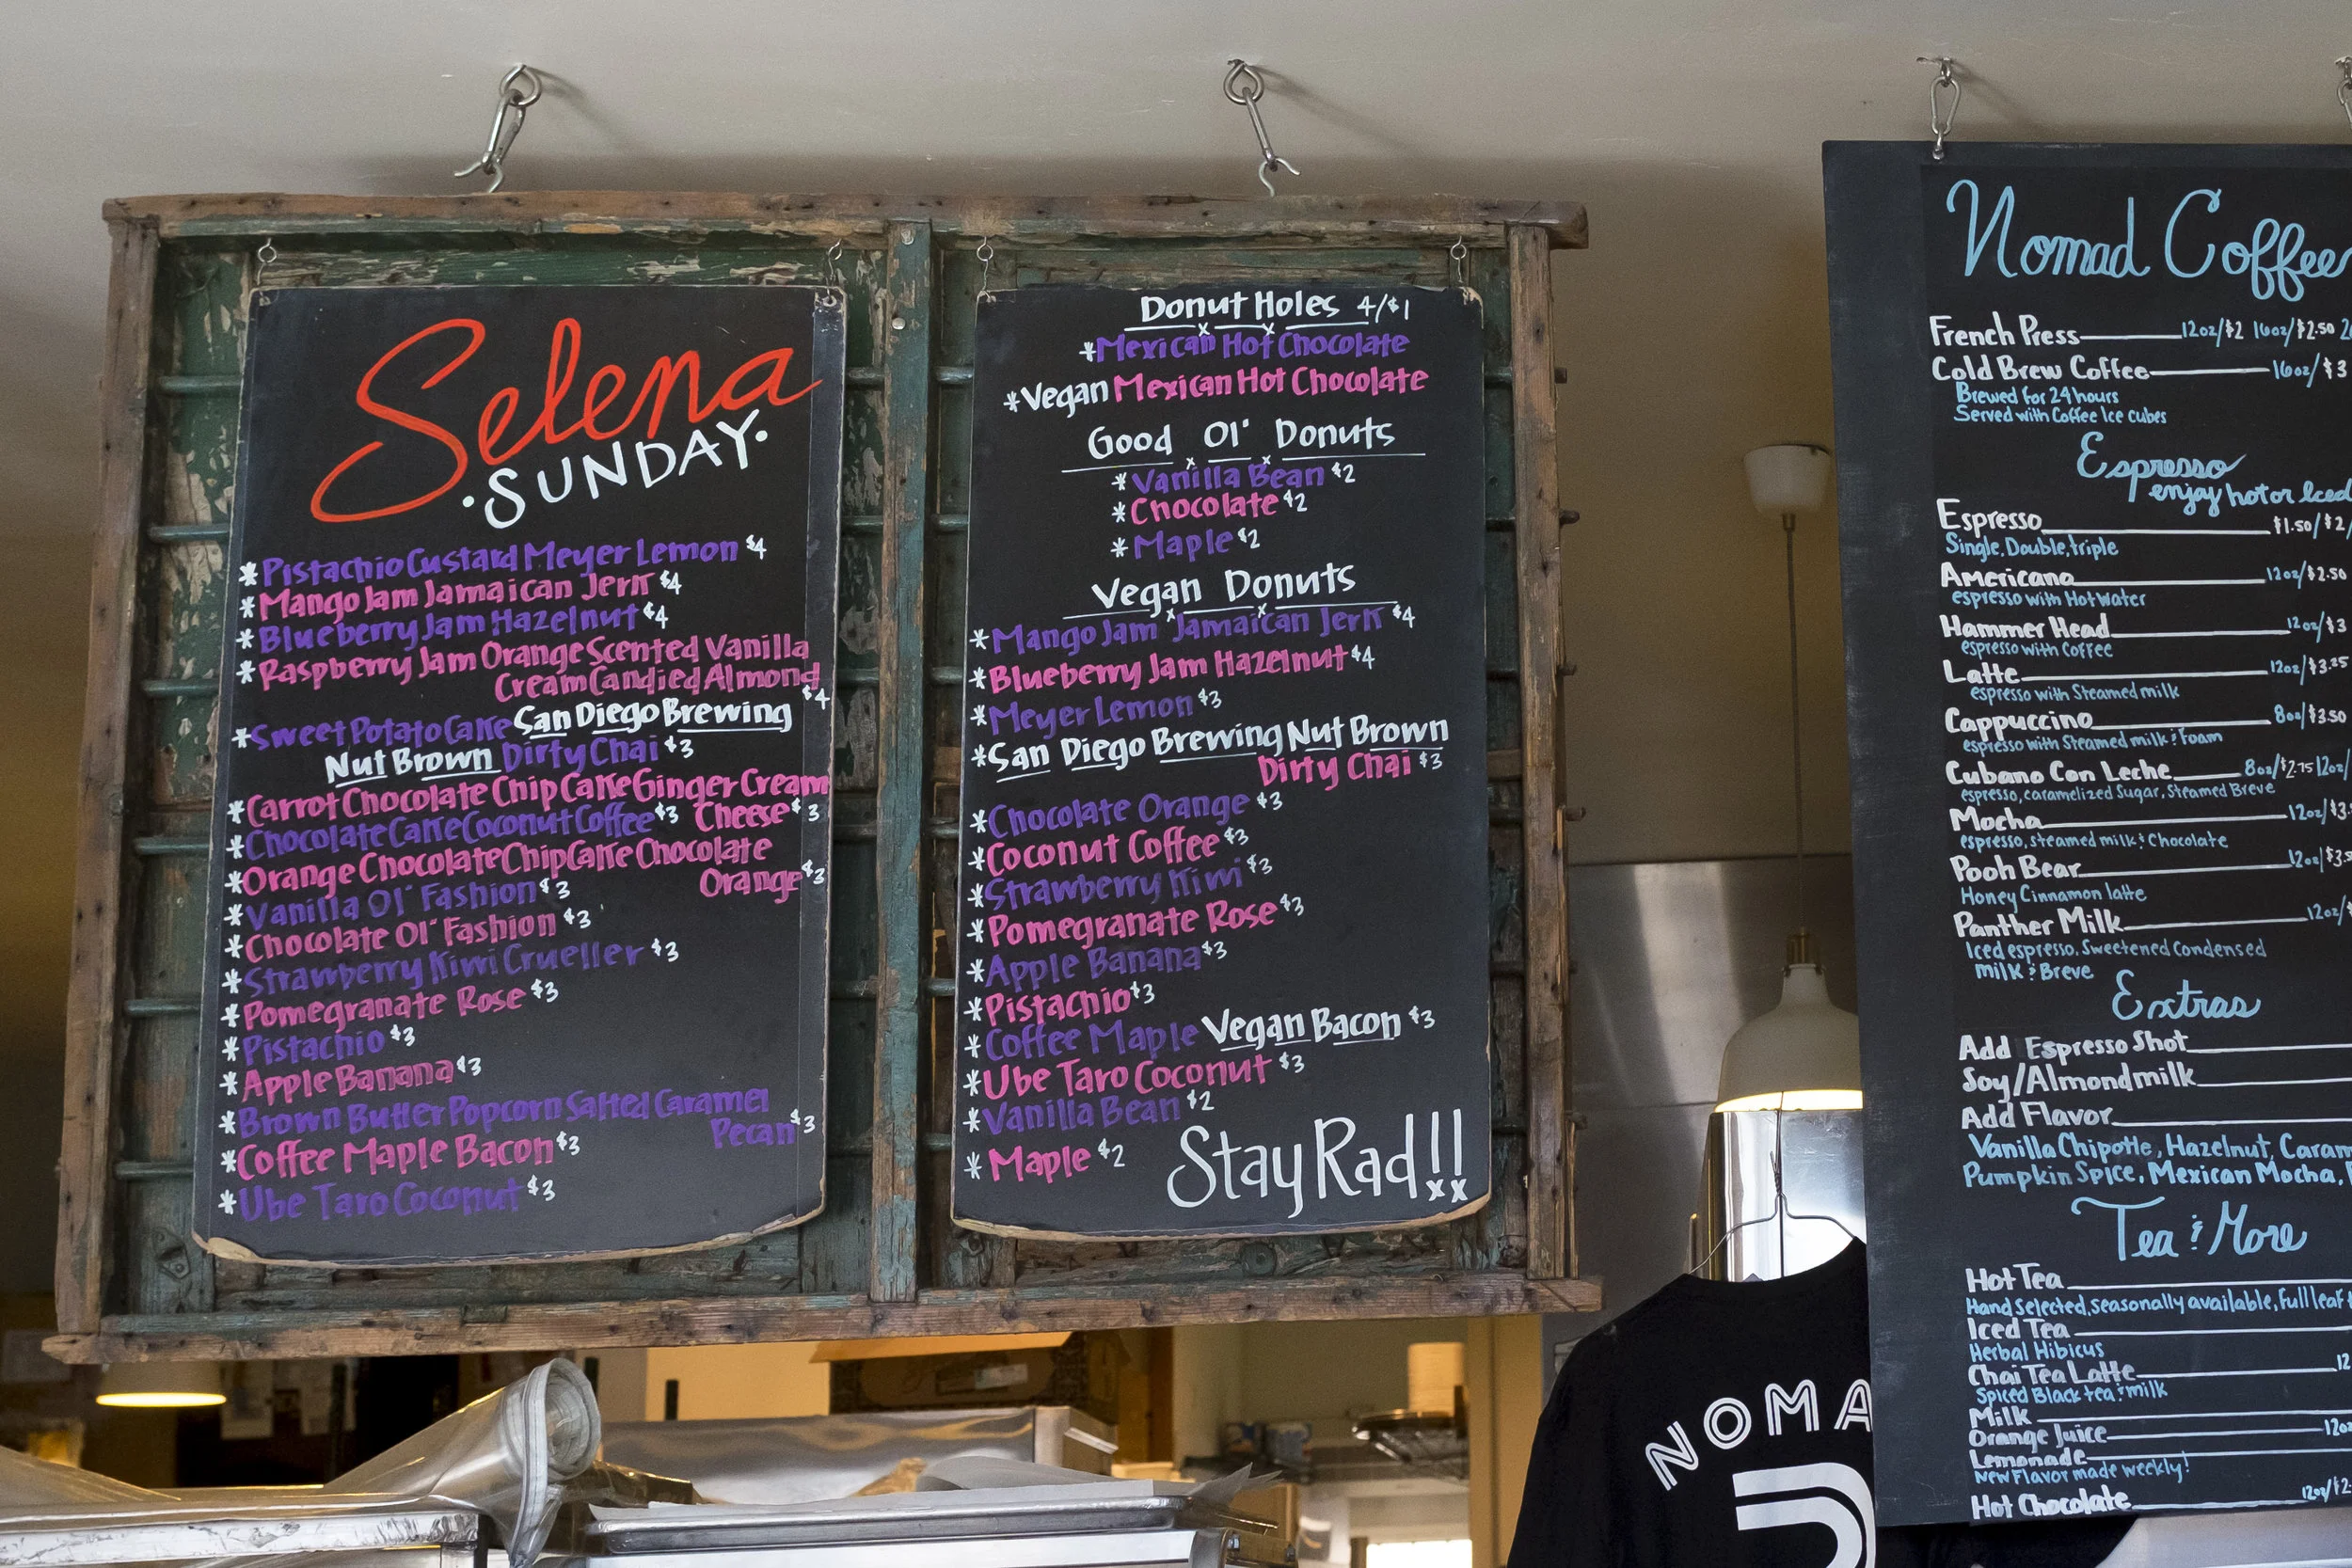 Selena
·SUNDAY·
*Pistachio Custard Meyer Lemon $4
*Mango Jam Jamaican Jerk $4
*Blueberry Jam Hazelnut $4
*Raspberry Jam Orange Scented Vanilla
Cream Candied Almond $4
*Sweet Potato Cake San Diego Brewing
Nut Brown Dirty Chai $3
*Carrot Chocolate Chip Cake Ginger Cream
Cheese $3
*Chocolate Cake Coconut Coffee $3
*Orange Chocolate Chip Cake Chocolate
Orange $3
*Vanilla Ol' Fashion $3
*Chocolate Ol' Fashion $3
*Strawberry Kiwi Crueller $3
*Pomegranate Rose $3
*Pistachio $3
*Apple Banana $3
*Brown Butter Popcorn Salted Caramel
Pecan $3
*Coffee Maple Bacon $3
*Ube Taro Coconut $3
Donut Holes 4/$1
*Mexican Hot Chocolate
*Vegan Mexican Hot Chocolate
Good Ol' Donuts
*Vanilla Bean $2
*Chocolate $2
*Maple $2
Vegan Donuts
*Mango Jam Jamaican Jerk $4
*Blueberry Jam Hazelnut $4
*Meyer Lemon $3
*San Diego Brewing Nut Brown
Dirty Chai $3
*Chocolate Orange $3
*Coconut Coffee $3
*Strawberry Kiwi $3
*Pomegranate Rose $3
*Apple Banana $3
*Pistachio $3
*Coffee Maple Vegan Bacon $3
*Ube Taro Coconut $3
*Vanilla Bean $2
*Maple $2
Stay Rad!!
xx
Nomad Coffee
French Press 12oz/$2 16oz/$2.50
Cold Brew Coffee 16oz/$3
Brewed for 24 hours
Served with Coffee Ice cubes
Espresso
enjoy hot or Iced
Espresso $1.50/$2/
Single, Double, triple
Americano 12oz/$2.50
espresso with Hot Water
Hammer Head 12oz/$3
espresso with Coffee
Latte 12oz/$3.25
espresso with Steamed milk
Cappuccino 8oz/$3.50
espresso with Steamed milk & Foam
Cubano Con Leche 8oz/$2.75 12oz/
espresso, caramelized Sugar, Steamed Breve
Mocha 12oz/$3.
espresso, steamed milk & Chocolate
Pooh Bear 12oz/$3.
Honey Cinnamon latte
Panther Milk 12oz/
Iced espresso, Sweetened Condensed
milk & Breve
Extras
Add Espresso Shot
Soy/Almond milk
Add Flavor
Vanilla Chipotle, Hazelnut, Caram
Pumpkin Spice, Mexican Mocha,
Tea & More
Hot Tea
Hand selected, seasonally available, full leaf
Iced Tea
Herbal Hibicus
Chai Tea Latte 12
Spiced Black tea & milk
Milk
Orange Juice 12oz
Lemonade
New Flavor made weekly!
Hot Chocolate 12oz/$2.
NOMA